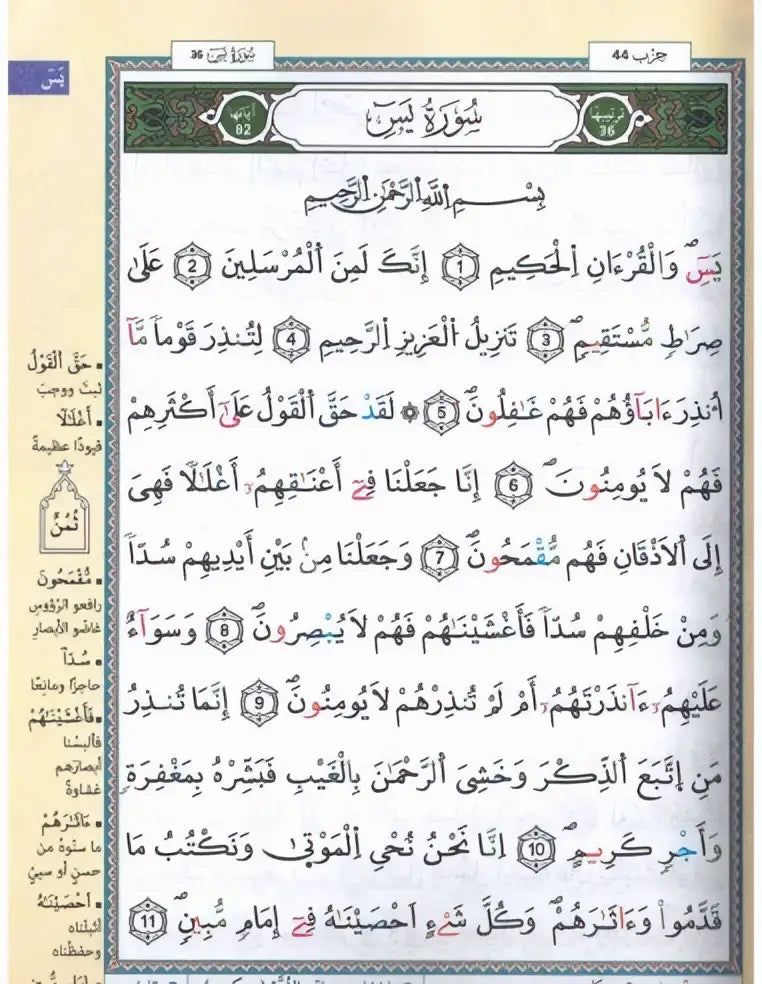 حزب 44
سورة يس 36
يس
ترتيبها
36
سُورَةُ يَسٓ
آياتها
82
بِسْمِ اللَّهِ الرَّحْمَٰنِ الرَّحِيمِ
يَسٓۖ وَالْقُرْءَانِ اِ۬لْحَكِيمِ 1 إِنَّكَ لَمِنَ اَ۬لْمُرْسَلِينَ 2 عَلَىٰ
صِرَٰطٖ مُّسْتَقِيمٖۖ 3 تَنزِيلُ اُ۬لْعَزِيزِ اِ۬لرَّحِيمِ 4 لِتُنذِرَ قَوْماٗ مَّآ
أُنذِرَ ءَابَآؤُهُمْ فَهُمْ غَٰفِلُونَۖ 5 ۞ لَقَدْ حَقَّ اَ۬لْقَوْلُ عَلَىٰٓ أَكْثَرِهِمْ
فَهُمْ لَا يُومِنُونَۖ 6 إِنَّا جَعَلْنَا فِےٓ أَعْنَٰقِهِمُۥٓ أَغْلَٰلاٗ فَهِيَ
إِلَى اَ۬لَاذْقَانِ فَهُم مُّقْمَحُونَۖ 7 وَجَعَلْنَا مِنۢ بَيْنِ أَيْدِيهِمْ سُدّاٗ
وَمِنْ خَلْفِهِمْ سُدّاٗ فَأَغْشَيْنَٰهُمْ فَهُمْ لَا يُبْصِرُونَۖ 8 وَسَوَآءٌ
عَلَيْهِمُۥٓ ءَآنذَرْتَهُمُۥٓ أَمْ لَمْ تُنذِرْهُمْ لَا يُومِنُونَۖ 9 إِنَّمَا تُنذِرُ
مَنِ اِ۪تَّبَعَ اَ۬لذِّكْرَ وَخَشِيَ اَ۬لرَّحْمَٰنَ بِالْغَيْبِ فَبَشِّرْهُ بِمَغْفِرَةٖ
وَأَجْرٖ كَرِيمٍۖ 10 اِنَّا نَحْنُ نُحْيِ اِ۬لْمَوْتَىٰ وَنَكْتُبُ مَا
قَدَّمُواْ وَءَاثَٰرَهُمْۖ وَكُلَّ شَےْءٍ اَحْصَيْنَٰهُ فِےٓ إِمَامٖ مُّبِينٖۖ 11
▪ حَقَّ اَلْقَوْلُ
ثبتَ ووجبَ
▪ أَغْلَٰلاٗ
قيودًا عظيمةً
ثُمُنٌ
▪ مُّقْمَحُونَ
رافعو الرّؤوسِ
غاضّو الأبصارِ
▪ سُدّاٗ
حاجزًا ومانِعًا
▪ فَأَغْشَيْنَٰهُمْ
فألبسْنا
أبصارَهم
غشاوةً
▪ ءَاثَٰرَهُمْ
ما سنّوهُ من
حسنٍ أو سيئٍ
▪ أَحْصَيْنَٰهُ
أثبتْناه
وحفظْناه